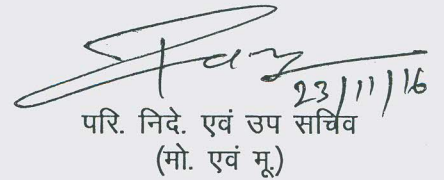 23/11/16
परि. निदे. एवं उप सचिव
(मो. एवं मू.)